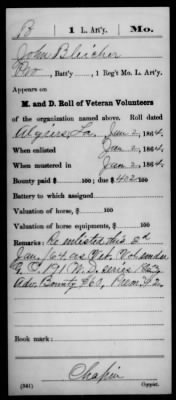 B | 1 L. Art'y. | Mo.
John Bleicher
Pvt, Batt'y , 1 Reg't Mo. L. Art'y.
Appears on
M. and D. Roll of Veteran Volunteers
of the organization named above. Roll dated
Algiers, La. Jan 2, 1864.
When enlisted Jan 2, 1864.
When mustered in Jan 2, 1864.
Bounty paid $ 100; due $ 402 100
Battery to which assigned
Valuation of horse, $ 100
Valuation of horse equipments, $ 100
Remarks: Re enlisted this 2d
Jan. /64 as Vet. Vol. under
G. O. 191 W. D. series /63
Adv. Bounty $60, Prem. $2.
Book mark:
Chapin
(341) Copyist.